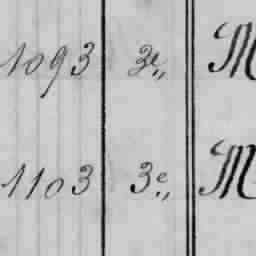 1093 3e,, M
1103 3e,, M